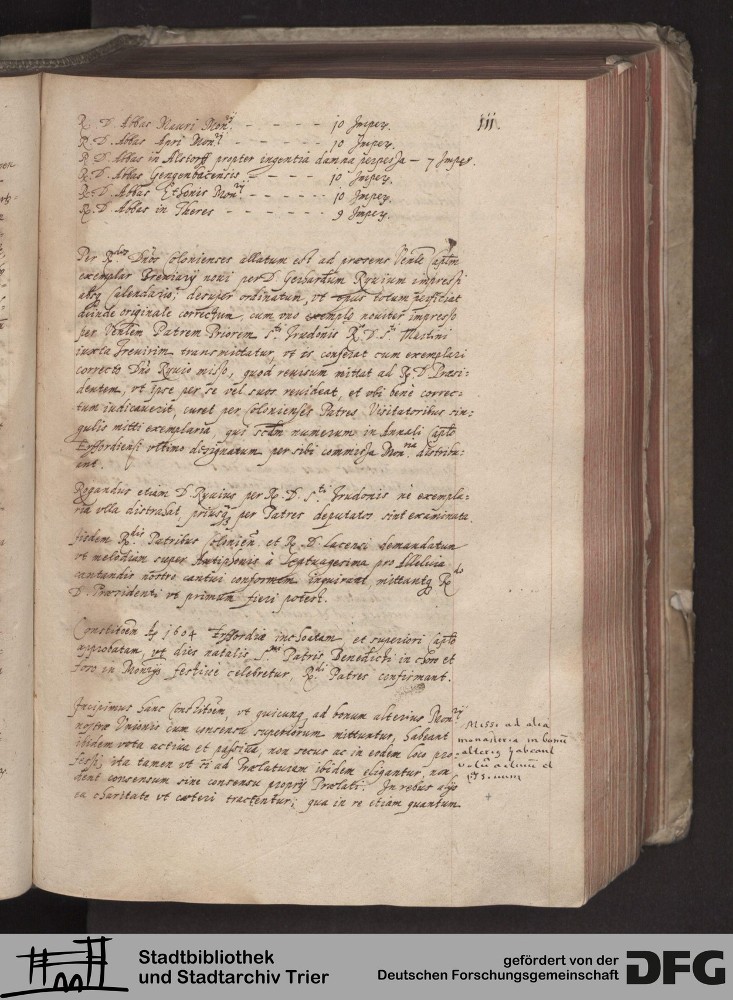 III.
R. D. Abbas Mauri Monrij. - - - - - 10 Imper.
R. D. Abbas Apri Monrij - - - - - 10 Imper.
R. D. Abbas in Alstorff propter ingentia damna perpessa - 7 Imper.
R. D. Abbas Gengenbacensis - - - - 10 Imper.
R. D. Abbas Ethonis Monrij - - - - 10 Imper.
R. D. Abbas in Theres - - - - - - 9 Imper.
Per Rdos Dnos Colonienses allatum est ad præsens Venle Captm
exemplar Breviarij novi per D. Gerhardum Ryvium impressi
absq Calendario; desuper ordinatum, vt opus totum perficiat
deinde originale correctum, cum vno exemplo noviter impresso
per Venlem Patrem Priorem Sti Trudonis Rdo D. Sti Martini
iuxta Trevirim transmittatur, vt is conferat cum exemplari
correcto Dno Ryvio misso, quod revisum mittat ad R. D. Præsi-
dentem, vt ipse per se vel suos revideat, et vbi bene correc-
tum iudicaverit, curet per Colonienses Patres Visitatoribus sin-
gulis mitti exemplaria, qui scdm numerum in Annali Caplo
Erffordiensi vltimo designatum per sibi commissa Monria distribu-
ant.
Rogandus etiam D. Ryvius per R. D. Sti Trudonis ne exempla-
ria vlla distrahat priusq per Patres deputatos sint examinata.
Eisdem Rdis Patribus Colonien et R. D. Lacensi demandatum
vt melodiam super Antiphonis à Septuagesima pro Alleluia
cantandis nostro cantui conformem inquirant mittantq Rdo
D. Præsidenti vt primum fieri potest.
Constitoem de 1604 Erffordiæ inchoatam et superiori Caplo
approbatam, vt dies natalis Smi Patris Benedicti in choro et
foro in Monrijs festivè celebretur, Rdi Patres confirmant.
Incipimus hanc Constitoem, vt quicunq ad bonum alterius Monrij
nostræ Vnionis cum consensu superiorum mittuntur, habeant
ibidem vota activa et passiva, non secus ac in eodem loco pro-
fessi, ita tamen vt si ad Prælaturam ibidem eligantur, non
dent consensum sine consensu proprij Prælati. In rebus alijs
ea charitate vt cæteri tractentur; qua in re etiam quantum
Missi ad alia
monasteria in bonum
alterius habeant
votum activum et
passivum
Stadtbibliothek
und Stadtarchiv Trier
gefördert von der
Deutschen Forschungsgemeinschaft
DFG